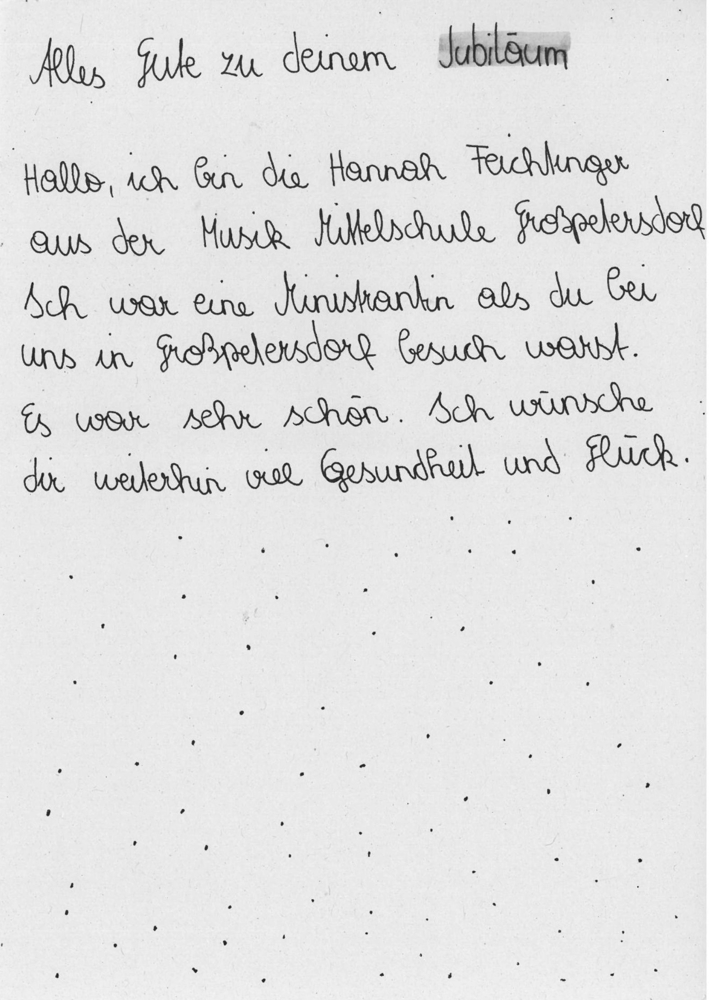 Alles Gute zu deinem Jubiläum
Hallo, ich bin die Hannah Feichtinger
aus der Musik Mittelschule Großpetersdorf
Ich war eine Ministrantin als du bei
uns in Großpetersdorf besuch warst.
Es war sehr schön. Ich wünsche
dir weiterhin viel Gesundheit und Glück.